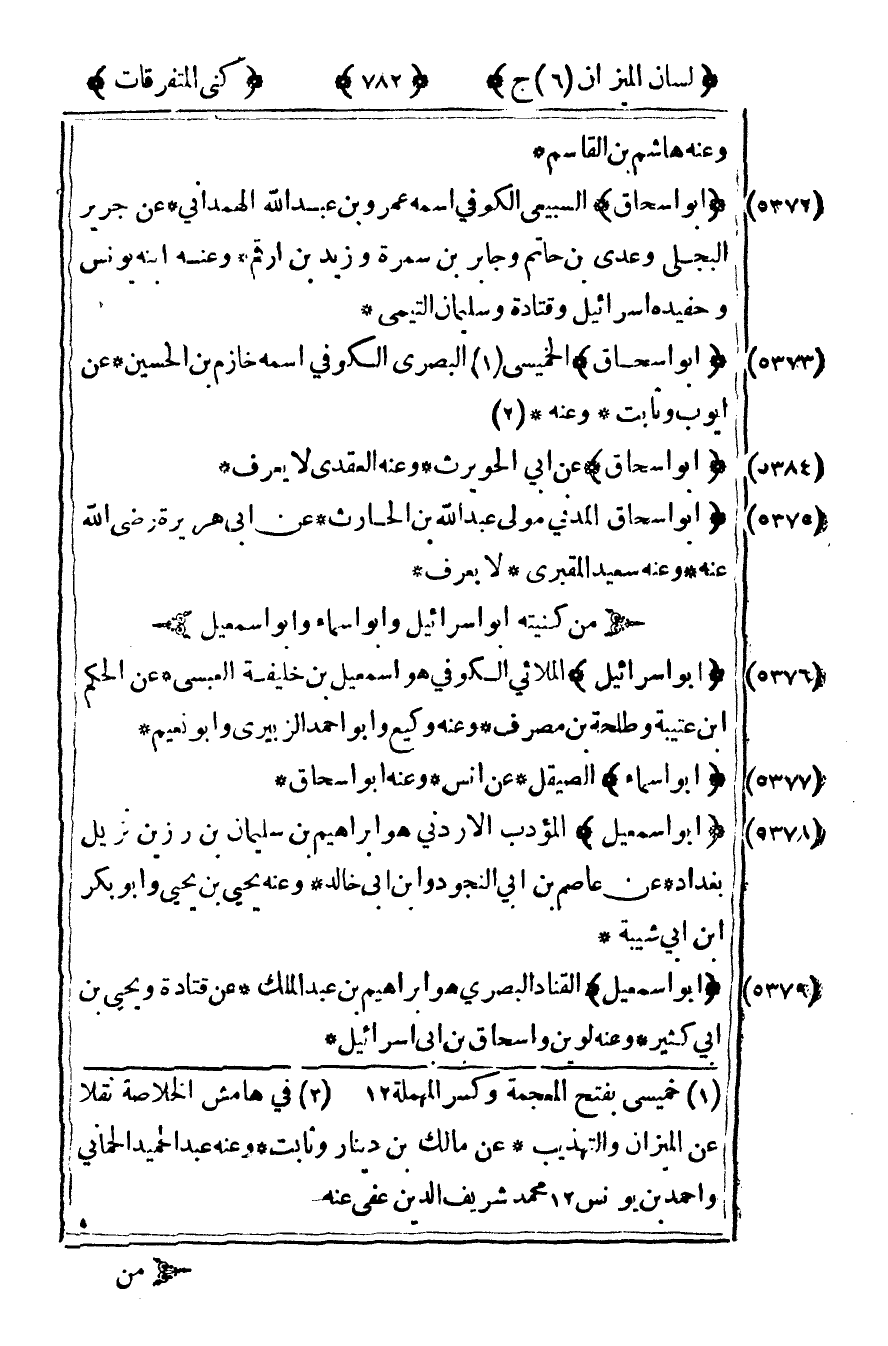 ﴿ لسان الميزان (٦) ج ﴾ ﴿ ٧٨٢ ﴾ ﴿ كنى المتفرقات ﴾
وعنه هاشم بن القاسم *
(٥٣٧٢) ﴿ ابو اسحاق ﴾ السبيعى الكوفي اسمه عمرو بن عبد الله الهمداني * عن جرير
البجلى وعدى بن حاتم وجابر بن سمرة وزيد بن ارقم * وعنه ابنه يونس
وحفيده اسرائيل وقتادة وسليمان التيمى *
(٥٣٧٣) ﴿ ابو اسحاق ﴾ الخميسى (١) البصرى الكوفي اسمه خازم بن الحسين * عن
ايوب وثابت * وعنه * (٢)
(٥٣٨٤) ﴿ ابو اسحاق ﴾ عن ابي الحويرث * وعنه العقدى لا يعرف *
(٥٣٧٥) ﴿ ابو اسحاق المدني مولى عبد الله بن الحارث * عن ابى هريرة رضى الله
عنه * وعنه سعيد المقبرى * لا يعرف *
من كنيته ابو اسرائيل وابو اسماء وابو اسمعيل
(٥٣٧٦) ﴿ ابو اسرائيل ﴾ الملائي الكوفي هو اسمعيل بن خليفة العبسى * عن الحكم
ابن عتيبة وطلحة بن مصرف * وعنه وكيع وابو احمد الزبيرى وابو نعيم *
(٥٣٧٧) ﴿ ابو اسماء ﴾ الصيقل * عن انس * وعنه ابو اسحاق *
(٥٣٧٨) ﴿ ابو اسمعيل ﴾ المؤدب الاردني هو ابراهيم بن سليمان بن رزين نزيل
بغداد * عن عاصم بن ابي النجود وابن ابى خالد * وعنه يحيى بن يحيى وابو بكر
ابن ابي شيبة *
(٥٣٧٩) ﴿ ابو اسمعيل ﴾ القناد البصري هو ابراهيم بن عبد الملك * عن قتادة ويحيى بن
ابي كثير * وعنه لوين واسحاق بن ابى اسرائيل *
(١) خميسى بفتح المعجمة وكسر المهملة ١٢ (٢) في هامش الخلاصة نقلا
عن الميزان والتهذيب * عن مالك بن دينار وثابت * وعنه عبد الحميد الحماني
واحمد بن يونس ١٢ محمد شريف الدين عفى عنه
من